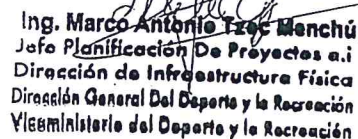 Ing. Marco Antonio Tzoc Menchú
Jefe Planificación De Proyectos a.i
Dirección de Infraestructura Física
Dirección General Del Deporte y la Recreación
Viceministerio del Deporte y la Recreación